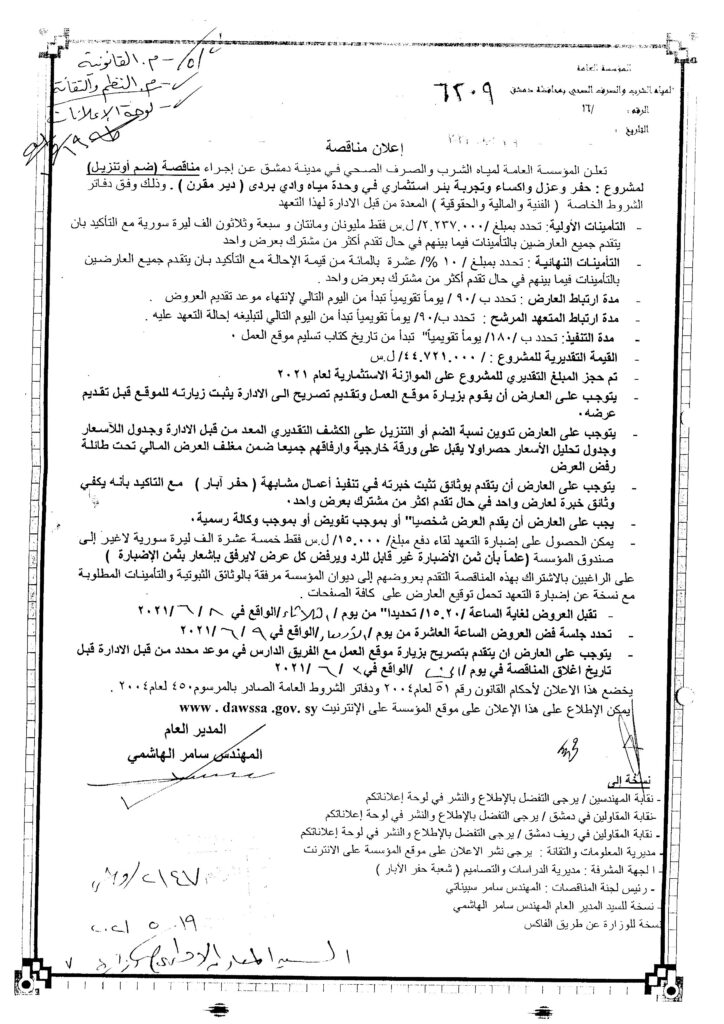 م. القانونية
م. النظم والتقانة
لوحة الإعلانات
المؤسسة العامة
لمياه الشرب والصرف الصحي بمحافظة دمشق
الرقم : ١٦/ ٦٢٠٩
التاريخ :
إعلان مناقصة
تعلن المؤسسة العامة لمياه الشرب والصرف الصحي في مدينة دمشق عن إجراء مناقصة (ضم أوتنزيل)
لمشروع : حفر وعزل واكساء وتجربة بئر استثماري في وحدة مياه وادي بردى ( دير مقرن ) . وذلك وفق دفاتر
الشروط الخاصة ( الفنية والمالية والحقوقية ) المعدة من قبل الادارة لهذا التعهد
- التأمينات الأولية: تحدد بمبلغ /٢.٢٣٧.٠٠٠/ ل.س فقط مليونان ومائتان و سبعة وثلاثون الف ليرة سورية مع التأكيد بان
يتقدم جميع العارضين بالتأمينات فيما بينهم في حال تقدم أكثر من مشترك بعرض واحد
- التأمينات النهائية : تحدد بمبلغ / ١٠ %/ عشرة بالمائة من قيمة الإحالة مع التأكيد بان يتقدم جميع العارضين
بالتأمينات فيما بينهم في حال تقدم أكثر من مشترك بعرض واحد .
- مدة ارتباط العارض : تحدد ب /٩٠ / يوماً تقويمياً تبدأ من اليوم التالي لإنتهاء موعد تقديم العروض .
- مدة ارتباط المتعهد المرشح : تحدد ب/٩٠/ يوماً تقويمياً تبدأ من اليوم التالي لتبليغه إحالة التعهد عليه .
- مدة التنفيذ: تحدد ب /١٨٠/ يوماً تقويمياً" تبدأ من تاريخ كتاب تسليم موقع العمل ٠
- القيمة التقديرية للمشروع : /٤٤.٧٢١.٠٠٠/ ل.س
- تم حجز المبلغ التقديري للمشروع على الموازنة الاستثمارية لعام ٢٠٢١
- يتوجب على العارض أن يقوم بزيارة موقع العمل وتقديم تصريح الى الادارة يثبت زيارته للموقع قبل تقديم
عرضه٠
- يتوجب على العارض تدوين نسبة الضم أو التنزيل على الكشف التقديري المعد من قبل الادارة وجدول اللأسعار
وجدول تحليل الأسعار حصراولا يقبل على ورقة خارجية وارفاقهم جميعا ضمن مغلف العرض المالي تحت طائلة
رفض العرض
- يتوجب على العارض أن يتقدم بوثائق تثبت خبرته في تنفيذ أعمال مشابهة ( حفر آبار ) مع التاكيد بأنه يكفي
وثائق خبرة لعارض واحد في حال تقدم اكثر من مشترك بعرض واحد٠
- يجب على العارض أن يقدم العرض شخصيا" أو بموجب تفويض أو بموجب وكالة رسمية٠
- يمكن الحصول على إضبارة التعهد لقاء دفع مبلغ/١٥.٠٠٠/ ل.س فقط خمسة عشرة الف ليرة سورية لاغير إلى
صندوق المؤسسة (علماً بأن ثمن الأضبارة غير قابل للرد ويرفض كل عرض لايرفق بإشعار بثمن الإضبارة )
على الراغبين بالاشتراك بهذه المناقصة التقدم بعروضهم إلى ديوان المؤسسة مرفقة بالوثائق الثبوتية والتأمينات المطلوبة
مع نسخة عن إضبارة التعهد تحمل توقيع العارض على كافة الصفحات .
- تقبل العروض لغاية الساعة /١٥.٢٠/ تحديدا" من يوم /الثلاثاء/الواقع في ٨ / ٦ /٢٠٢١
- تحدد جلسة فض العروض الساعة العاشرة من يوم /الأربعاء/الواقع في ٩ / ٦ /٢٠٢١
- يتوجب على العارض ان يتقدم بتصريح بزيارة موقع العمل مع الفريق الدارس في موعد محدد من قبل الادارة قبل
تاريخ اغلاق المناقصة في يوم / /الواقع في / ٦ /٢٠٢١
يخضع هذا الاعلان لأحكام القانون رقم ٥١ لعام٢٠٠٤ ودفاتر الشروط العامة الصادر بالمرسوم٤٥٠ لعام٢٠٠٤ .
يمكن الإطلاع على هذا الإعلان على موقع المؤسسة على الإنترنيت www . dawssa .gov. sy
المدير العام
المهندس سامر الهاشمي
نسخة إلى
- نقابة المهندسين / يرجى التفضل بالإطلاع والنشر في لوحة إعلاناتكم
-نقابة المقاولين في دمشق / يرجى التفضل بالإطلاع والنشر في لوحة إعلاناتكم
- نقابة المقاولين في ريف دمشق / يرجى التفضل بالإطلاع والنشر في لوحة إعلاناتكم
- مديرية المعلومات والتقانة : يرجى نشر الاعلان على موقع المؤسسة على الانترنت
- ا لجهة المشرفة : مديرية الدراسات والتصاميم ( شعبة حفر الآبار )
- رئيس لجنة المناقصات : المهندس سامر سبيناتي
- نسخة للسيد المدير العام المهندس سامر الهاشمي
نسخة للوزارة عن طريق الفاكس
١٩ ٥ ٢٠٢١